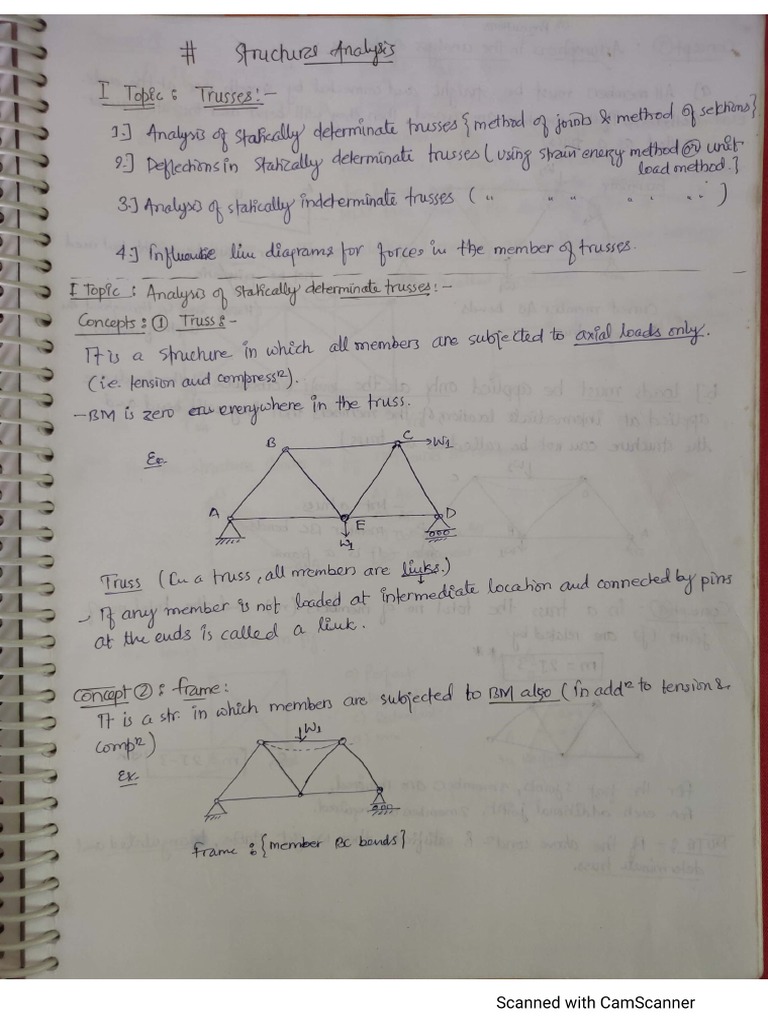 # Structures Analysis
I Topic : Trusses :-
1.] Analysis of statically determinate trusses {method of joints & method of sections}.
2.] Deflections in statically determinate trusses (using strain energy method or unit
load method.]
3.] Analysis of statically indeterminate trusses ( " " " " " )
4.] Influence line diagrams for forces in the member of trusses.
I Topic : Analysis of statically determinate trusses :-
Concepts : ① Truss :-
It is a structure in which all members are subjected to axial loads only.
(i.e. tension and compressn).
- BM is zero everywhere in the truss.
Ex.
B
C
W1
A
E
D
W1
Truss (In a truss, all members are links.)
- If any member is not loaded at intermediate location and connected by pins
at the ends is called a link.
Concept ② : frame :
It is a str. in which members are subjected to BM also (in addn to tension &
compn)
Ex.
W1
frame : {member BC bends}
Scanned with CamScanner